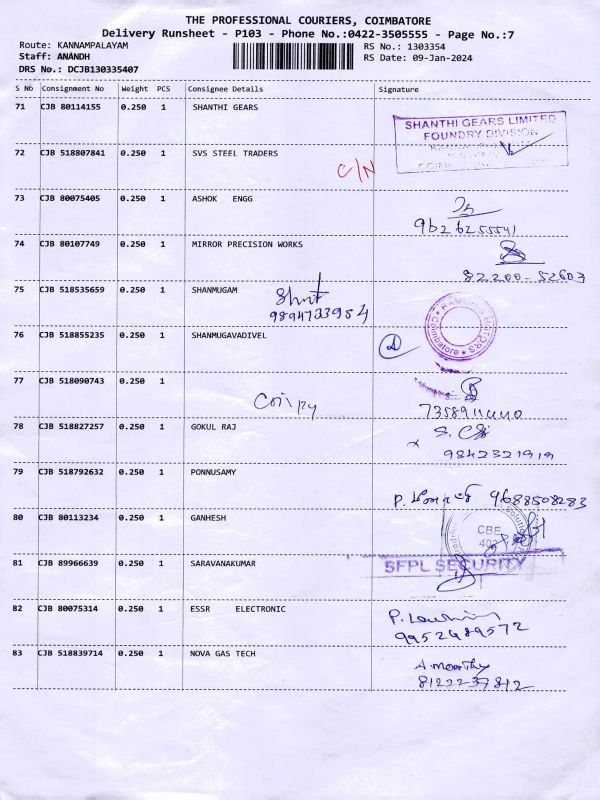 THE PROFESSIONAL COURIERS, COIMBATORE
Delivery Runsheet - P103 - Phone No.:0422-3505555 - Page No.:7
Route: KANNAMPALAYAM RS No.: 1303354
Staff: ANANDH RS Date: 09-Jan-2024
DRS No.: DCJB130335407
S No Consignment No Weight PCS Consignee Details Signature
71 CJB 80114155 0.250 1 SHANTHI GEARS
SHANTHI GEARS LIMITED
FOUNDRY DIVISION
72 CJB 518807841 0.250 1 SVS STEEL TRADERS
C/N
73 CJB 80075405 0.250 1 ASHOK ENGG
9626255541
74 CJB 80107749 0.250 1 MIRROR PRECISION WORKS
82200-52603
75 CJB 518535659 0.250 1 SHANMUGAM
9894733954
76 CJB 518855235 0.250 1 SHANMUGAVADIVEL
MOTORS Coimbatore
77 CJB 518090743 0.250 1
78 CJB 518827257 0.250 1 GOKUL RAJ
9842321919
79 CJB 518792632 0.250 1 PONNUSAMY
9688508283
80 CJB 80113234 0.250 1 GANHESH
CBE
81 CJB 89966639 0.250 1 SARAVANAKUMAR
SFPL SECURITY
82 CJB 80075314 0.250 1 ESSR ELECTRONIC
9952489572
83 CJB 518839714 0.250 1 NOVA GAS TECH
A moorthy
8122237812